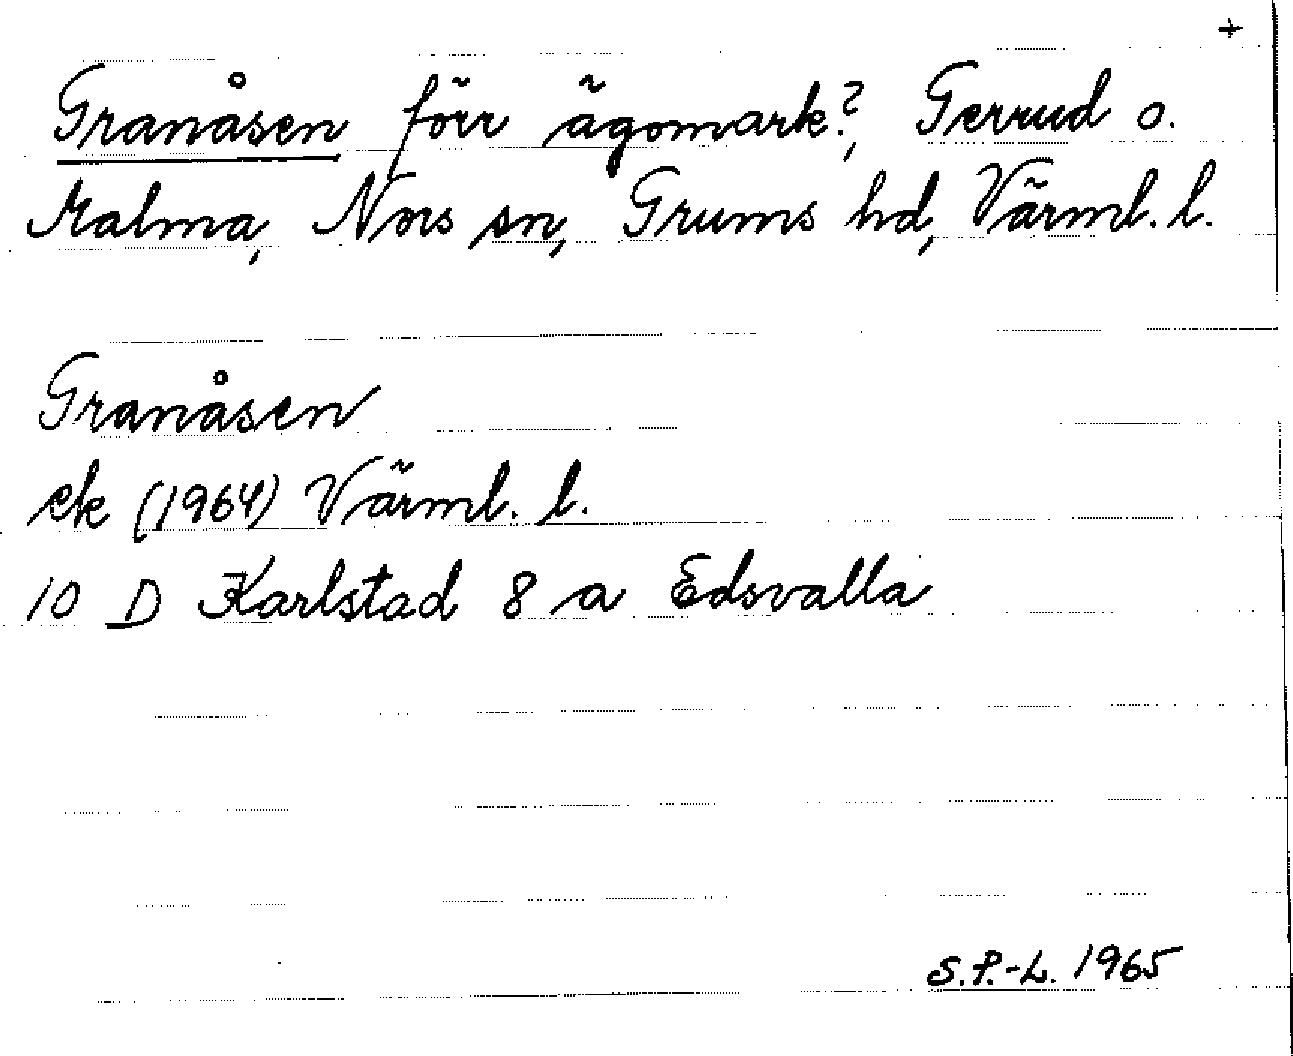 +
Granåsen förr ägomark?, Gerrud o.
Malma, Nors sn, Grums hd, Värml. l.
Granåsen
ek (1964) Värml. l.
10 D Karlstad 8 a Edsvalla
S.P.-L. 1965